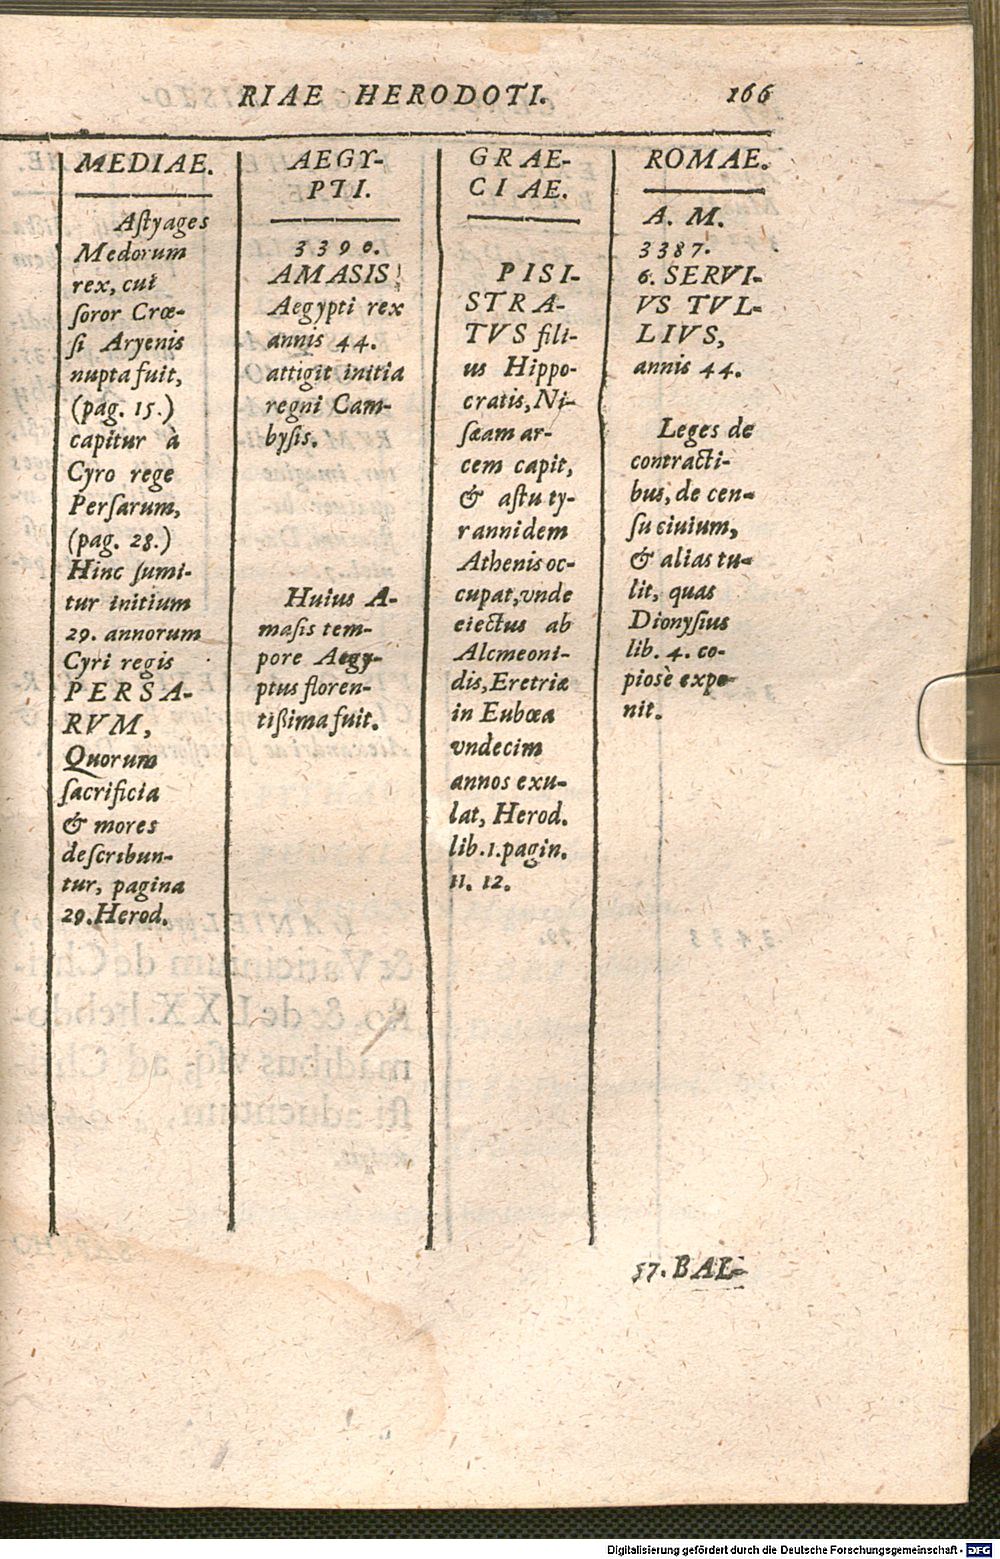 RIAE HERODOTI. 166
MEDIAE.
Aſtyages
Medorum
rex, cui
ſoror Crœ-
ſi Aryenis
nupta fuit,
(pag. 15.)
capitur à
Cyro rege
Perſarum,
(pag. 28.)
Hinc ſumi-
tur initium
29. annorum
Cyri regis
PERSA-
RVM,
Quorum
ſacrificia
& mores
deſcribun-
tur, pagina
29. Herod.
AEGY-
PTI.
3390.
AMASIS
Aegypti rex
annis 44.
attigit initia
regni Cam-
byſis.
Huius A-
maſis tem-
pore Aegy-
ptus floren-
tißima fuit.
GRAE-
CIAE.
PISI-
STRA-
TVS fili-
us Hippo-
cratis, Ni-
ſæam ar-
cem capit,
& aſtu ty-
rannidem
Athenis oc-
cupat, vnde
eiectus ab
Alcmeoni-
dis, Eretriæ
in Eubœa
vndecim
annos exu-
lat, Herod.
lib. 1. pagin.
11. 12.
ROMAE.
A. M.
3387.
6. SERVI-
VS TVL-
LIVS,
annis 44.
Leges de
contracti-
bus, de cen-
ſu ciuium,
& alias tu-
lit, quas
Dionyſius
lib. 4. co-
pioſè expo-
nit.
57. BAL-
Digitalisierung gefördert durch die Deutsche Forschungsgemeinschaft - DFG